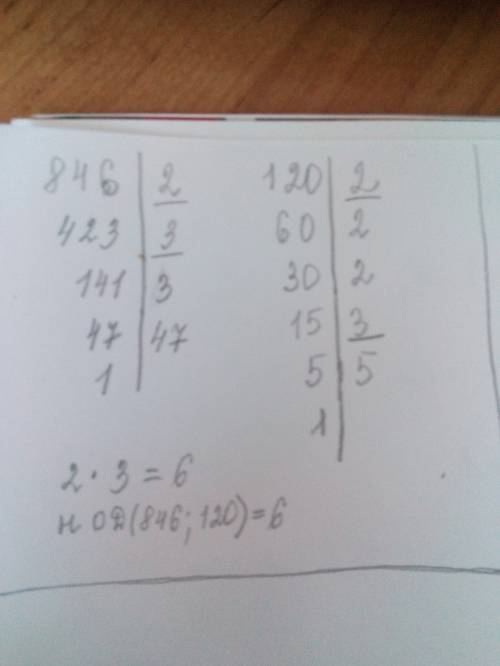 846 | 2
423 | 3
141 | 3
47 | 47
1 |
120 | 2
60 | 2
30 | 2
15 | 3
5 | 5
1 |
2 · 3 = 6
НОД(846; 120) = 6